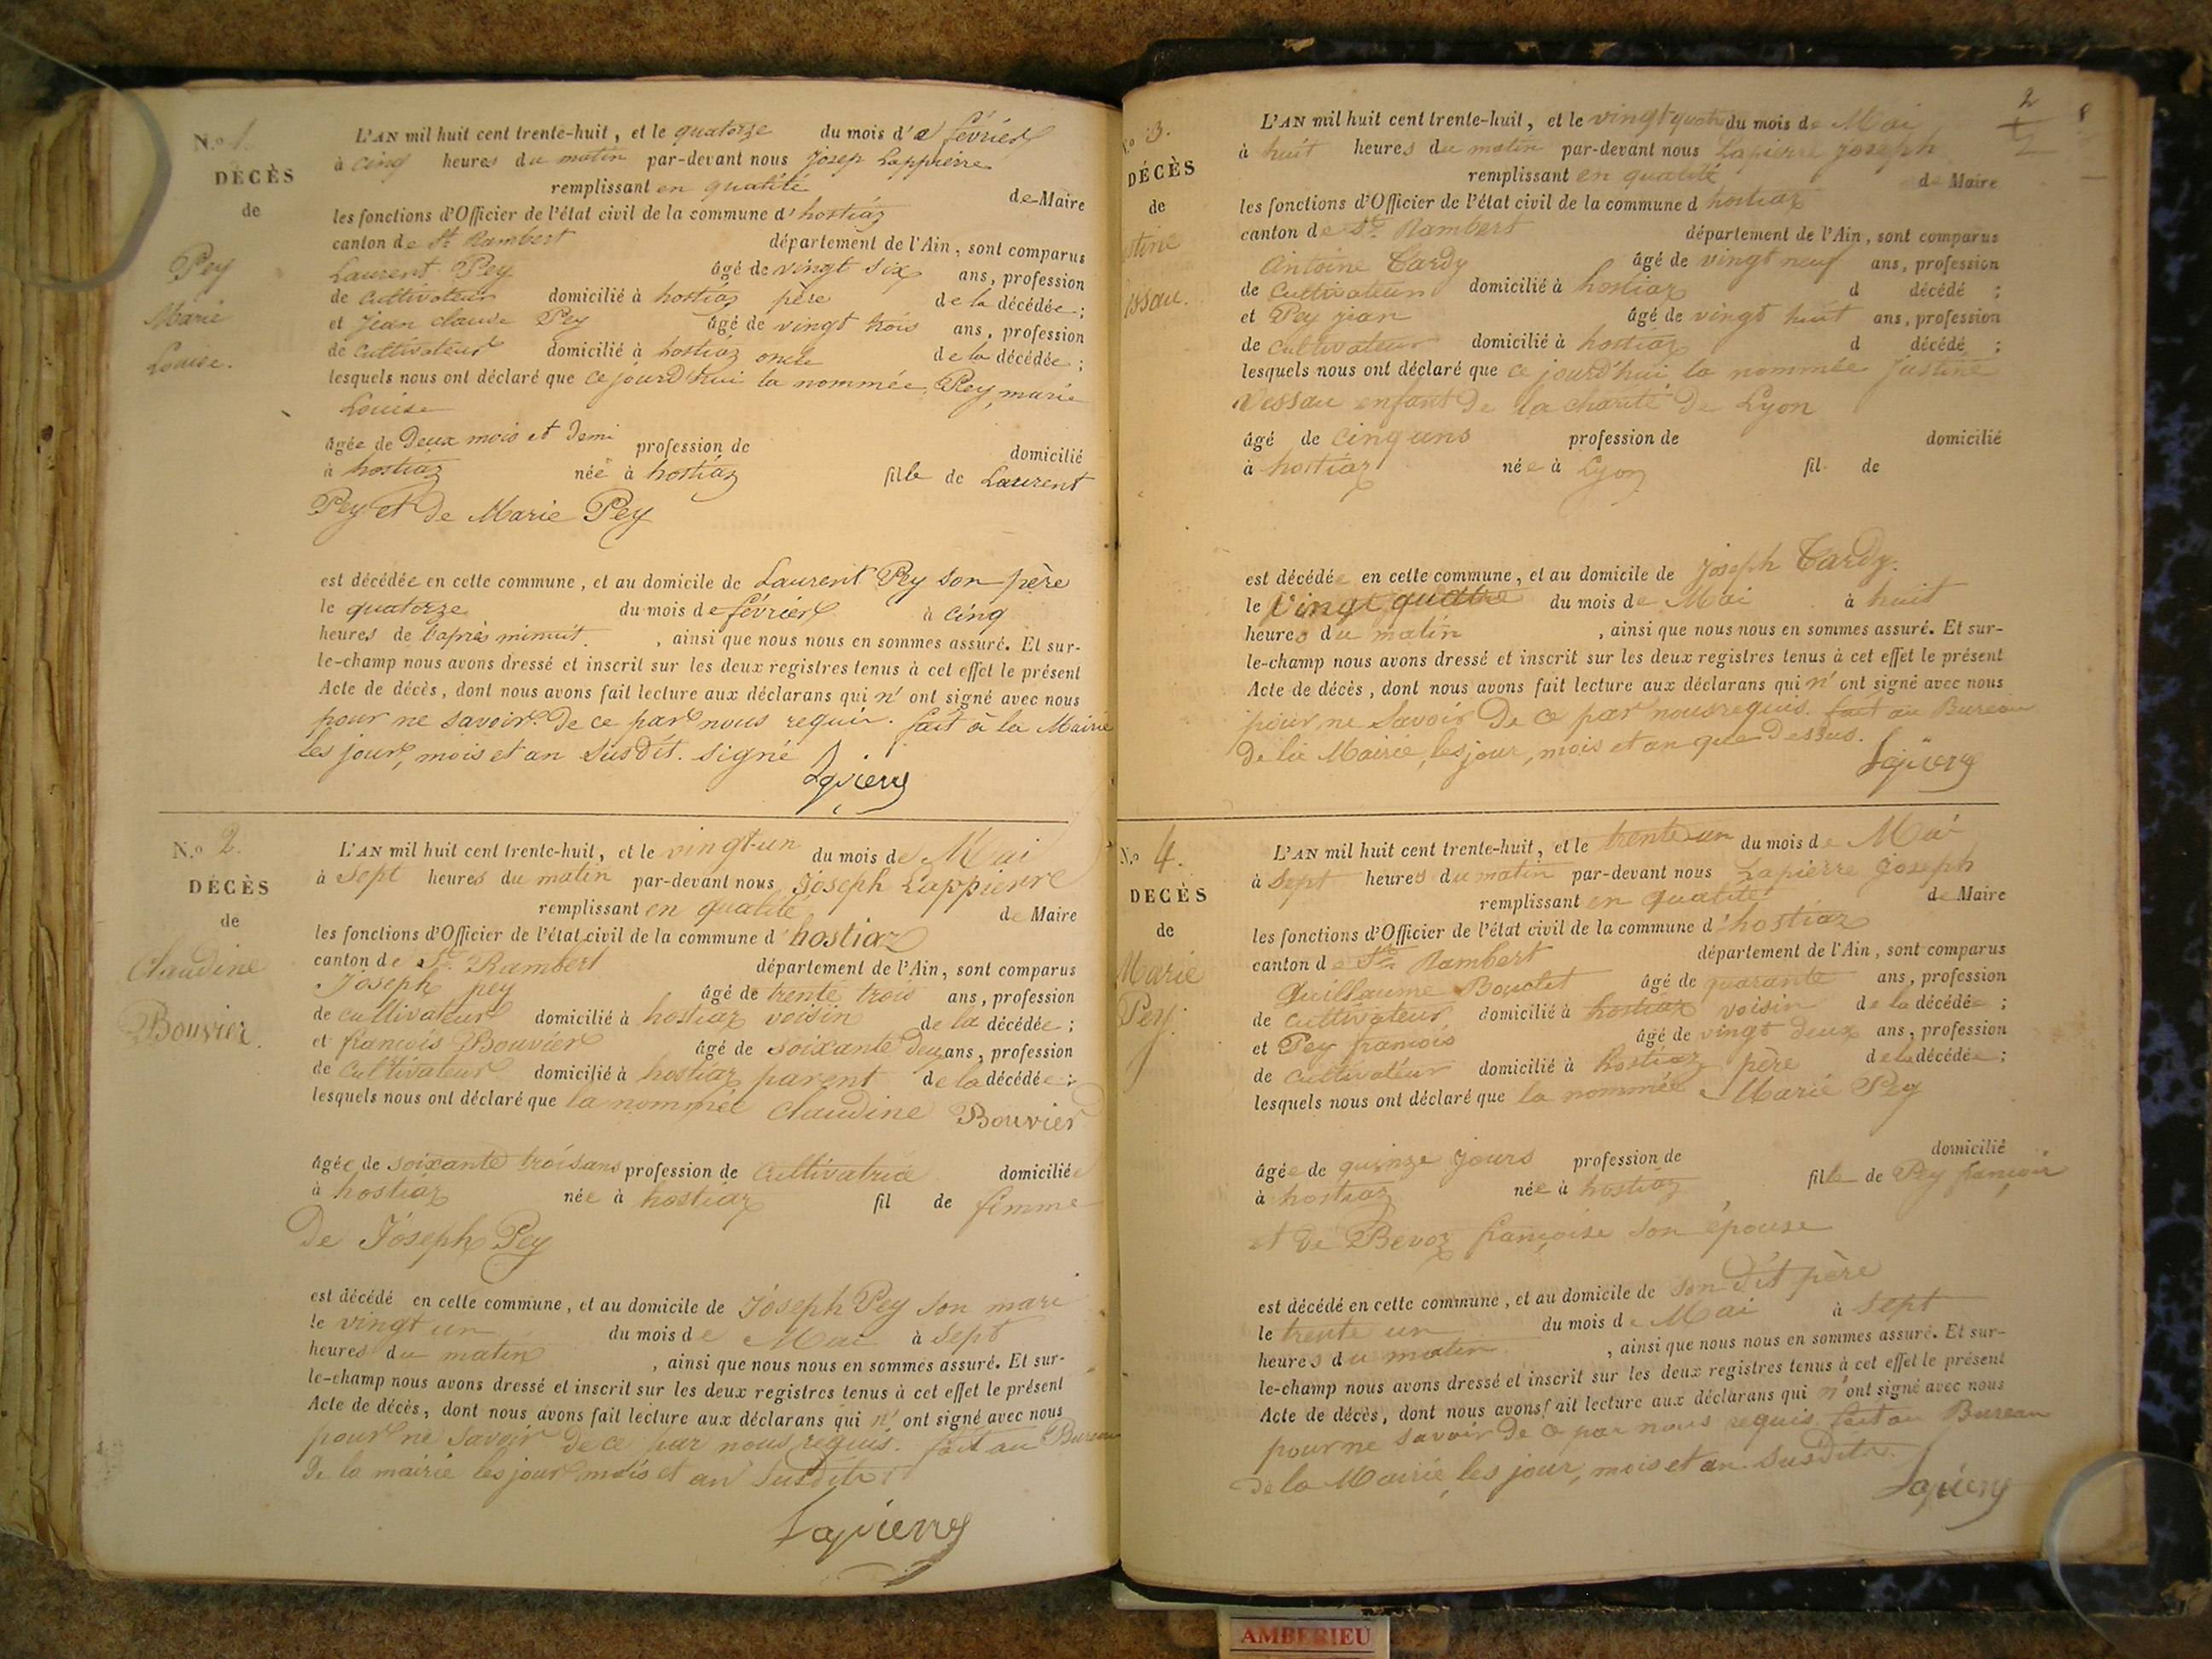 N.o 1.
DÉCÈS
de
Pey
Marie
Louise.
L'AN mil huit cent trente-huit, et le quatorze du mois d'e février
à cinq heures du matin par-devant nous josep Lappierre
remplissant en qualité de Maire
les fonctions d'Officier de l'état civil de la commune d'hostiaz
canton de St Rambert département de l'Ain, sont comparus
Laurent Pey âgé de vingt six ans, profession
de cultivateur domicilié à hostiaz père de la décédée;
et jean claude Pey âgé de vingt trois ans, profession
de cultivateur domicilié à hostiaz oncle de la décédée;
lesquels nous ont déclaré que ce jourd'hui la nommée Pey marie
Louise
âgée de Deux mois et Demi profession de domicilié
à hostiaz née à hostiaz fille de Laurent
Pey et de Marie Pey
est décédée en cette commune, et au domicile de Laurent Pey son père
le quatorze du mois de février à cinq
heures de l'après minuit, ainsi que nous nous en sommes assuré. Et sur-
le-champ nous avons dressé et inscrit sur les deux registres tenus à cet effet le présent
Acte de décès, dont nous avons fait lecture aux déclarans qui n'ont signé avec nous
pour ne savoir de ce par nous requis. fait à la Mairie
les jour, mois et an susdit. signé
Lapierre
N.o 2.
DÉCÈS
de
Claudine
Bouvier.
L'AN mil huit cent trente-huit, et le vingt-un du mois de Mai
à sept heures du matin par-devant nous Joseph Lappierre
remplissant en qualité de Maire
les fonctions d'Officier de l'état civil de la commune d'hostiaz
canton de St Rambert département de l'Ain, sont comparus
Joseph pey âgé de trente trois ans, profession
de cultivateur domicilié à hostiaz voisin de la décédée;
et francois Bouvier âgé de soixante deux ans, profession
de cultivateur domicilié à hostiaz parent de la décédée;
lesquels nous ont déclaré que la nommée Claudine Bouvier
âgée de soixante trois ans profession de cultivatrice domiciliée
à hostiaz née à hostiaz fil de femme
De Joseph Pey
est décédé en cette commune, et au domicile de Joseph Pey son mari
le vingt un du mois de Mai à sept
heures du matin, ainsi que nous nous en sommes assuré. Et sur-
le-champ nous avons dressé et inscrit sur les deux registres tenus à cet effet le présent
Acte de décès, dont nous avons fait lecture aux déclarans qui n'ont signé avec nous
pour ne savoir de ce par nous requis. fait au Bureau
de la mairie les jour mois et an susdits
Lapierre
2
N.o 3.
DÉCÈS
de
stine
essau.
L'AN mil huit cent trente-huit, et le vingt quatre du mois de Mai
à huit heures du matin par-devant nous Lapierre joseph
remplissant en qualité de Maire
les fonctions d'Officier de l'état civil de la commune d hostiaz
canton de St Rambert département de l'Ain, sont comparus
Antoine Tardy âgé de vingt neuf ans, profession
de cultivateur domicilié à hostiaz d décédé;
et Pey jean âgé de vingt huit ans, profession
de cultivateur domicilié à hostiaz d décédé;
lesquels nous ont déclaré que ce jourd'hui la nommée Justine
Vessau enfant de la charité de Lyon
âgé de cinq ans profession de domicilié
à hostiaz née à Lyon fil de
est décédée en cette commune, et au domicile de joseph Tardy.
le vingt quatre du mois de Mai à huit
heures du matin, ainsi que nous nous en sommes assuré. Et sur-
le-champ nous avons dressé et inscrit sur les deux registres tenus à cet effet le présent
Acte de décès, dont nous avons fait lecture aux déclarans qui n'ont signé avec nous
pour ne savoir de ce par nous requis. fait au Bureau
de la Mairie, les jour, mois et an que dessus.
Lapierre
N.o 4.
DECÈS
de
Marie
Pey.
L'AN mil huit cent trente-huit, et le trente un du mois de Mai
à sept heures du matin par-devant nous Lapierre joseph
remplissant en qualité de Maire
les fonctions d'Officier de l'état civil de la commune d'hostiaz
canton de St Rambert département de l'Ain, sont comparus
Guillaume âgé de quarante ans, profession
de cultivateur domicilié à hostiaz voisin de la décédée;
et Pey francois âgé de vingt deux ans, profession
de cultivateur domicilié à hostiaz père de la décédée;
lesquels nous ont déclaré que la nommée Marie Pey
âgée de quinze jours profession de domicilié
à hostiaz née à hostiaz fille de Pey françois
et de Bevoz françoise son épouse
est décédé en cette commune, et au domicile de son dit père
le trente un du mois de Mai à sept
heures du matin, ainsi que nous nous en sommes assuré. Et sur-
le-champ nous avons dressé et inscrit sur les deux registres tenus à cet effet le présent
Acte de décès, dont nous avons fait lecture aux déclarans qui n'ont signé avec nous
pour ne savoir de ce par nous requis. fait au Bureau
de la Mairie, les jour, mois et an susdits.
Lapierre
AMBERIEU